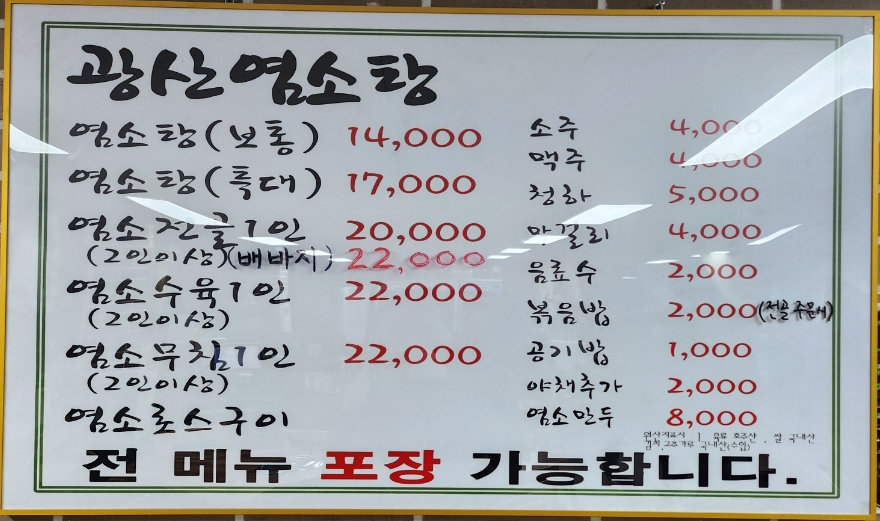 광산염소탕
염소탕(보통) 14,000
염소탕(특대) 17,000
염소전골1인 20,000
(2인이상)(배바지) 22,000
염소수육1인 22,000
(2인이상)
염소무침1인 22,000
(2인이상)
염소로스구이
소주 4,000
맥주 4,000
청하 5,000
막걸리 4,000
음료수 2,000
볶음밥 2,000(전골주문시)
공기밥 1,000
야채추가 2,000
염소만두 8,000
원산지표시 육류 호주산 . 쌀 국내산
김치, 고추가루 국내산(수입)
전 메뉴 포장 가능합니다.